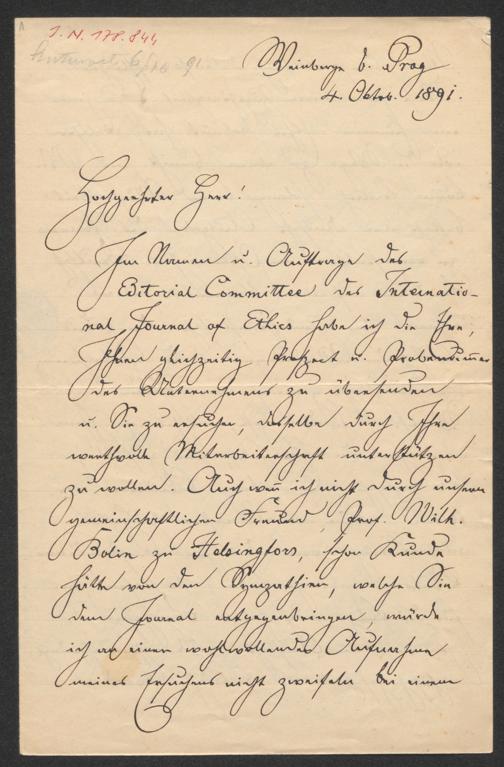 I. N. 178.844
Weinberge b. Prag
4. Oktob. 1891.
Hochgeehrter Herr!
Im Namen u. Auftrage des
Editorial Committee des Internatio-
nal Journal of Ethics habe ich die Ehre,
Ihnen gleichzeitig Prospect u. Probenum̄er
des Unternehmens zu übersenden
u. Sie zu ersuchen, dasselbe durch Ihre
werthvolle Mitarbeiterschaft unterstützen
zu wollen. Auch wen̄ ich nicht durch unsern
gemeinschaftlichen Freund, Prof. Wilh.
Bolin zu Helsingfors, schon Kunde
hätte von den Sympathien, welche Sie
dem Journal entgegenbringen, würde
ich an einer wohlwollenden Aufnahme
meines Ersuchens nicht zweifeln bei einem